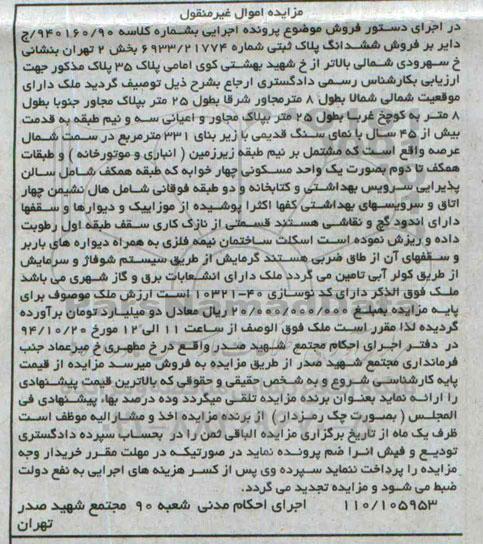 مزایده اموال غیرمنقول
در اجرای دستور فروش موضوع پرونده اجرایی بشماره کلاسه ۹۴۰۱۶۰/۹۰/ج
دایر بر فروش ششدانگ پلاک ثبتی شماره ۶۹۳۳/۲۱۷۷۴ بخش ۲ تهران بنشانی
خ سهرودی شمالی بالاتر از خ شهید بهشتی کوی امامی پلاک ۳۵ پلاک مذکور جهت
ارزیابی بکارشناس رسمی دادگستری ارجاع بشرح ذیل توصیف گردید ملک دارای
موقعیت شمالی شمالا بطول ۸ مترمجاور شرقا بطول ۲۵ متر بپلاک مجاور جنوبا بطول
۸ متر به کوچخ غربا بطول ۲۵ متر بپلاک مجاور و اعیانی سه و نیم طبقه به قدمت
بیش از ۴۵ سال با نمای سنگ قدیمی با زیر بنای ۳۳۱ مترمربع در سمت شمال
عرصه واقع است که مشتمل بر نیم طبقه زیرزمین ( انباری و موتورخانه ) و طبقات
همکف تا دوم بصورت یک واحد مسکونی چهار خوابه که طبقه همکف شامل سالن
پذیرایی سرویس بهداشتی و کتابخانه و دو طبقه فوقانی شامل هال نشیمن چهار
اتاق و سرویسهای بهداشتی کفها اکثرا پوشیده از موزاییک و دیوارها و سقفها
دارای اندود گچ و نقاشی هستند قسمتی از نازک کاری سقف طبقه اول رطوبت
داده و ریزش نموده است اسکلت ساختمان نیمه فلزی به همراه دیواره های باربر
و سقفهای آن از طاق ضربی هستند گرمایش از طریق سیستم شوفاژ و سرمایش
از طریق کولر آبی تامین می گردد ملک دارای انشعابات برق و گاز شهری می باشد
ملک فوق الذکر دارای کد نوسازی ۴۰-۱۰۳۲۱ است ارزش ملک موصوف برای
پایه مزایده بمبلغ ۲۰/۰۰۰/۰۰۰/۰۰۰ ریال معادل دو میلیارد تومان برآورده
گردیده لذا مقرر است ملک فوق الوصف از ساعت ۱۱ الی ۱۲ مورخ ۹۴/۱۰/۲۰
در دفتر اجرای احکام مجتمع شهید صدر واقع در خ مطهری خ میرعماد جنب
فرمانداری مجتمع شهید صدر از طریق مزایده به فروش میرسد مزایده از قیمت
پایه کارشناسی شروع و به شخص حقیقی و حقوقی که بالاترین قیمت پیشنهادی
را ارائه نماید بعنوان برنده مزایده تلقی میگردد وده درصد بها، پیشنهادی فی
المجلس ( بصورت چک رمزدار ) از برنده مزایده اخذ و مشارالیه موظف است
ظرف یک ماه از تاریخ برگزاری مزایده الباقی ثمن را در بحساب سپرده دادگستری
تودیع و فیش انرا ضم پرونده نماید در صورتیکه در مهلت مقرر خریدار وجه
مزایده را پرداخت ننماید سپرده وی پس از کسر هزینه های اجرایی به نفع دولت
ضبط می شود و مزایده تجدید می گردد.
۱۱۰/۱۰۵۹۵۳ اجرای احکام مدنی شعبه ۹۰ مجتمع شهید صدر
تهران